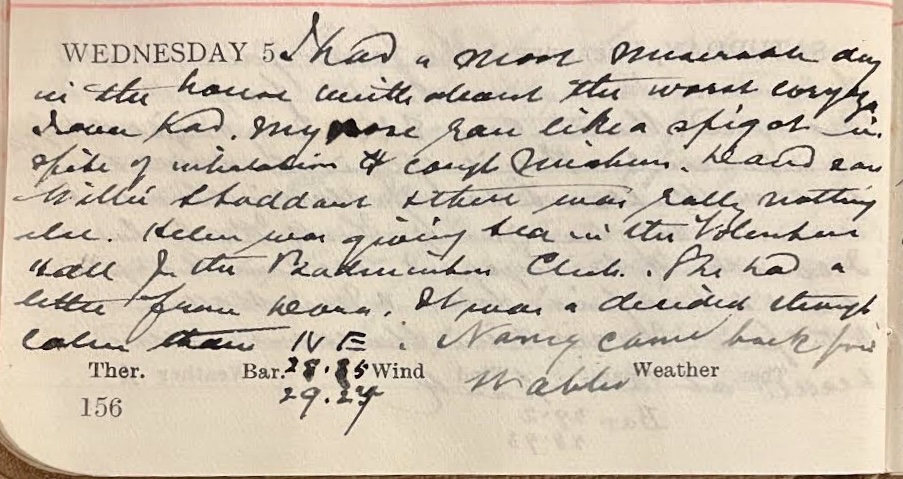 WEDNESDAY 5 I had a most miserable day
in the house with about the worst coryza
I ever had. My nose ran like a spigot in
spite of inhalation & cough mixture. David saw
Willie Stoddart & there was really nothing
else. Helen was giving tea in the Volunteer
Hall for the Badminton Club. She had a
letter from Dora. It was a decided though
calm N E. Nancy came back from
Ther. Bar. 28.85 Wind Weather
29.24
156